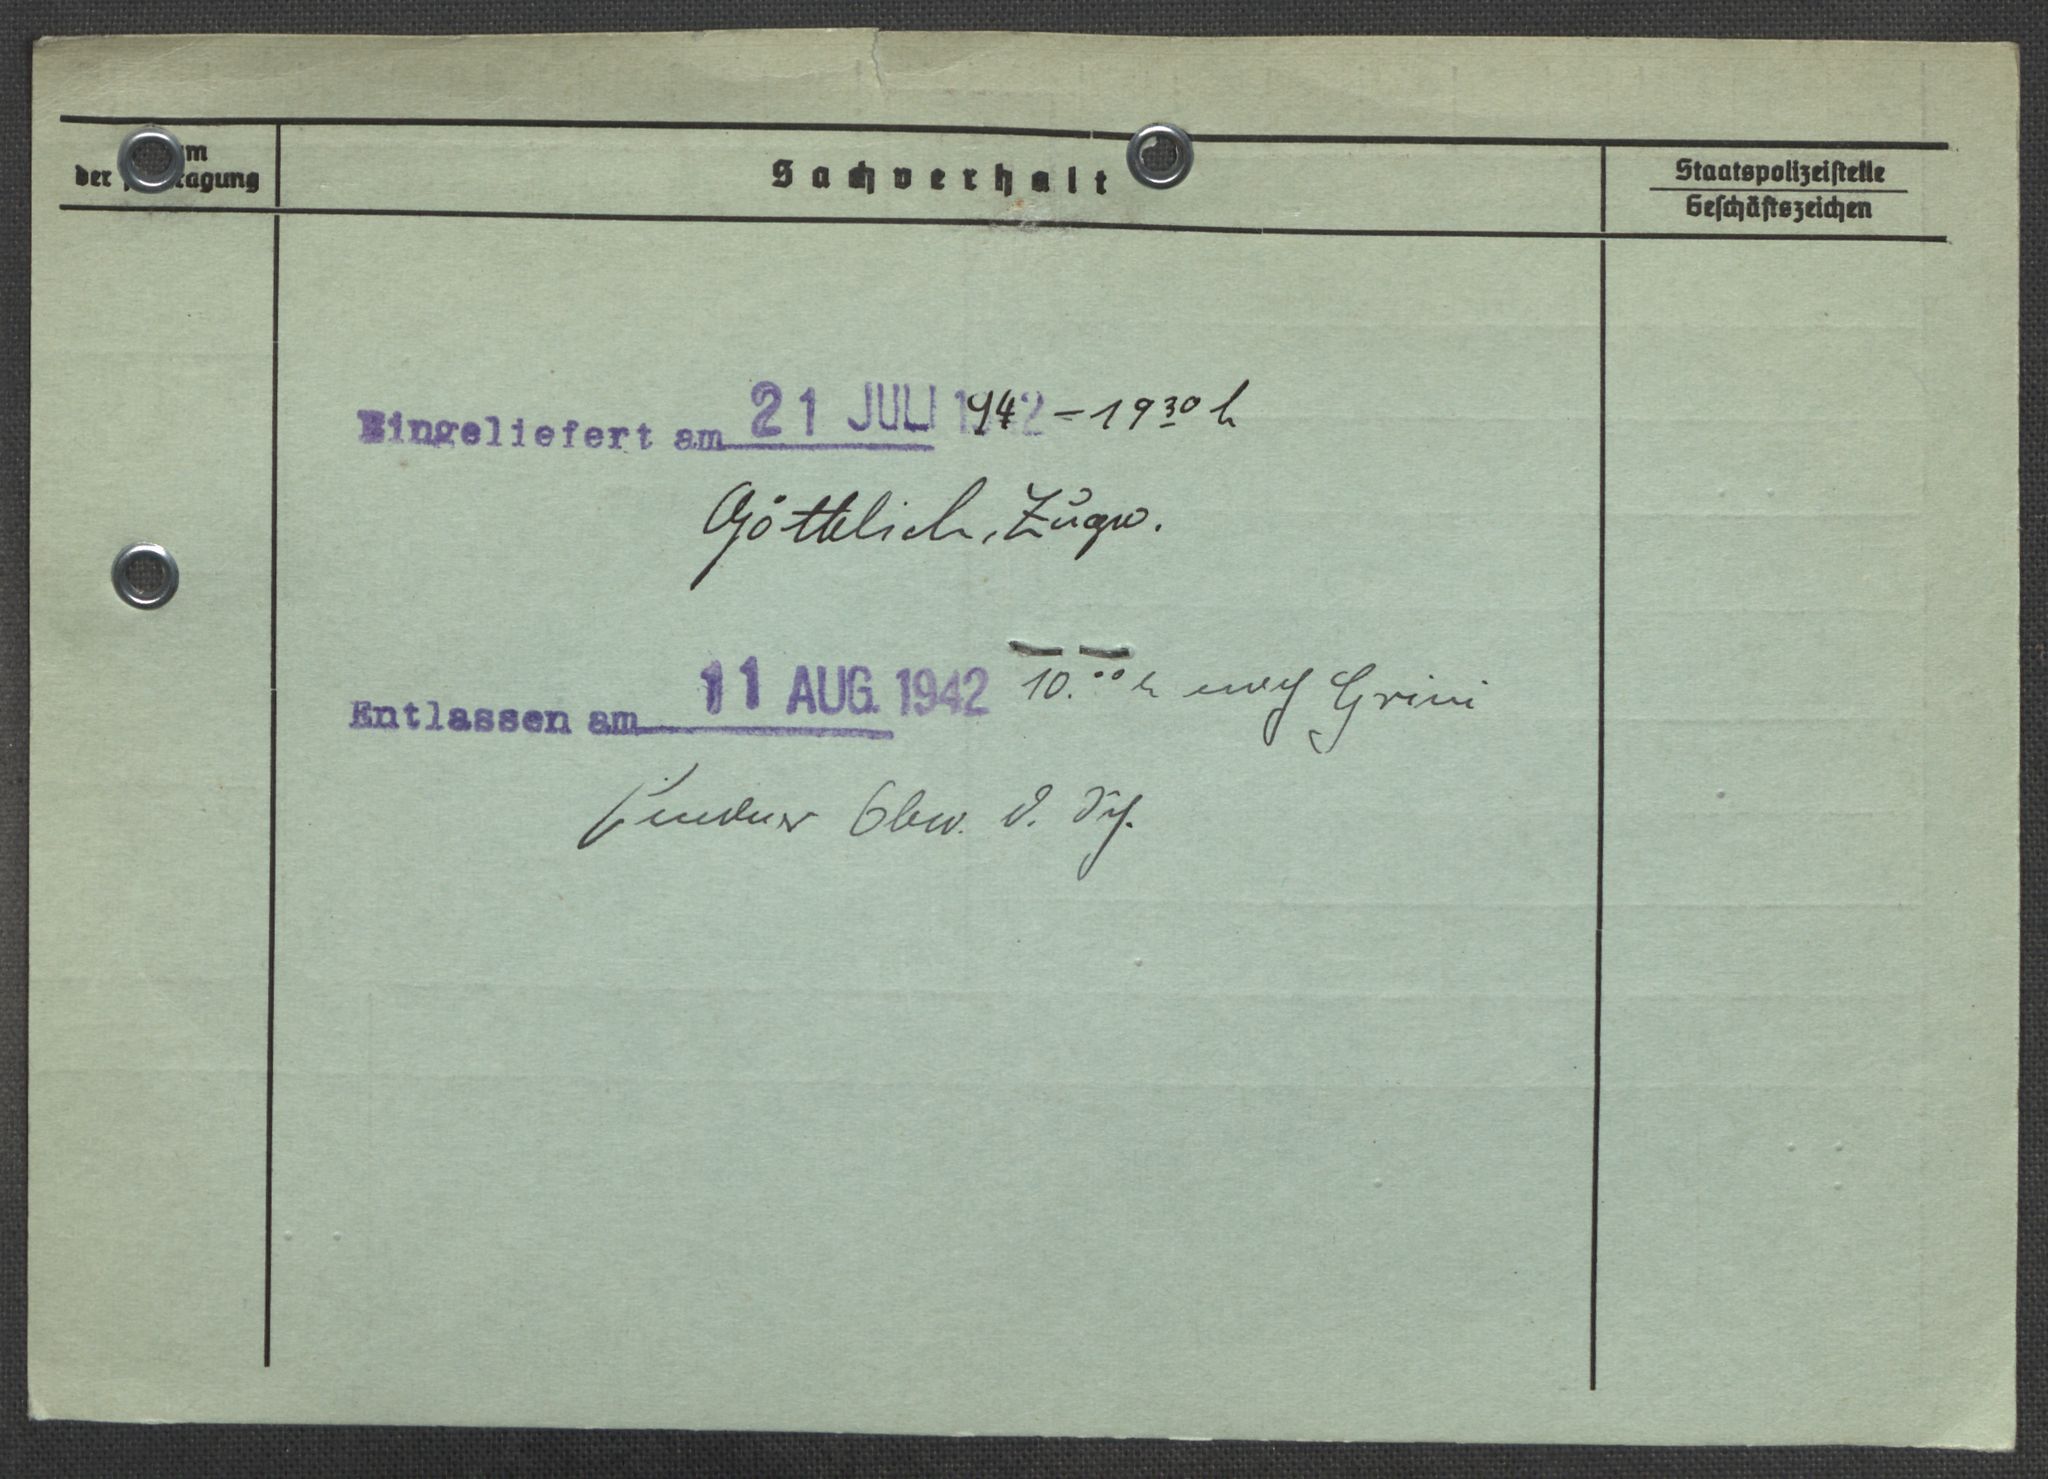 der
Sachverhalt
Staatspolizeistelle
Geschäftszeichen
Eingeliefert am 21 JULI 1942 – 19 30 h
Göttlich, Zugw.
Entlassen am 11 AUG. 1942 10.00 h nach Grini
Obw. d. Sch.